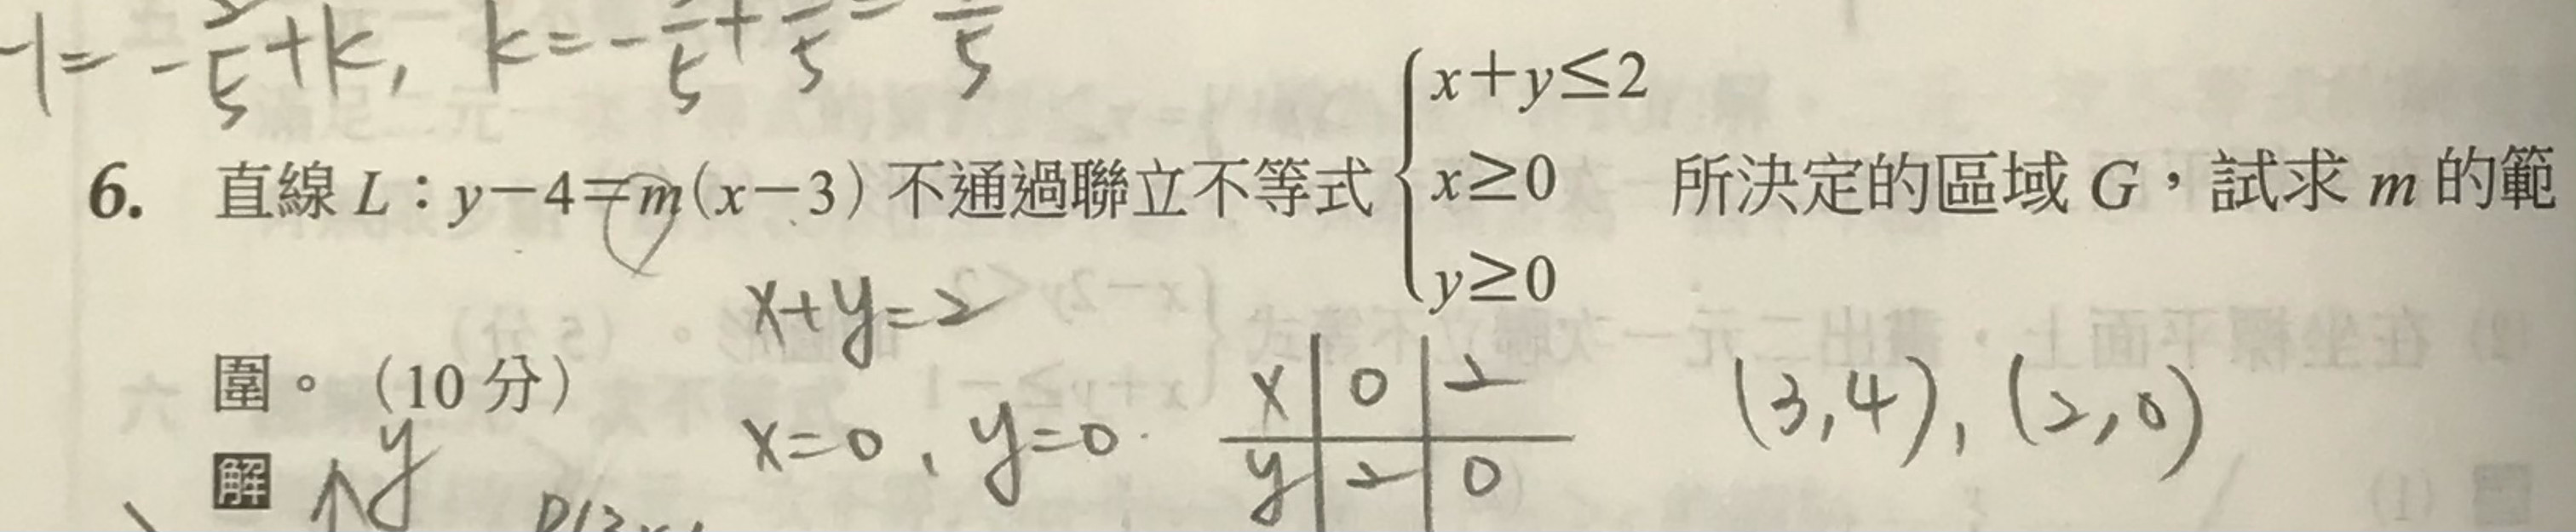 -1=-
5
+k, k=-
5
+
5
=
5
6. 直線 L：y－4＝m(x－3) 不通過聯立不等式 { x＋y≤2
x≥0
y≥0 所決定的區域 G，試求 m 的範
圍。（10 分）
x+y=2
x=0、y=0
x | 0 | 2
y | 2 | 0
(3,4), (2,0)
解
y